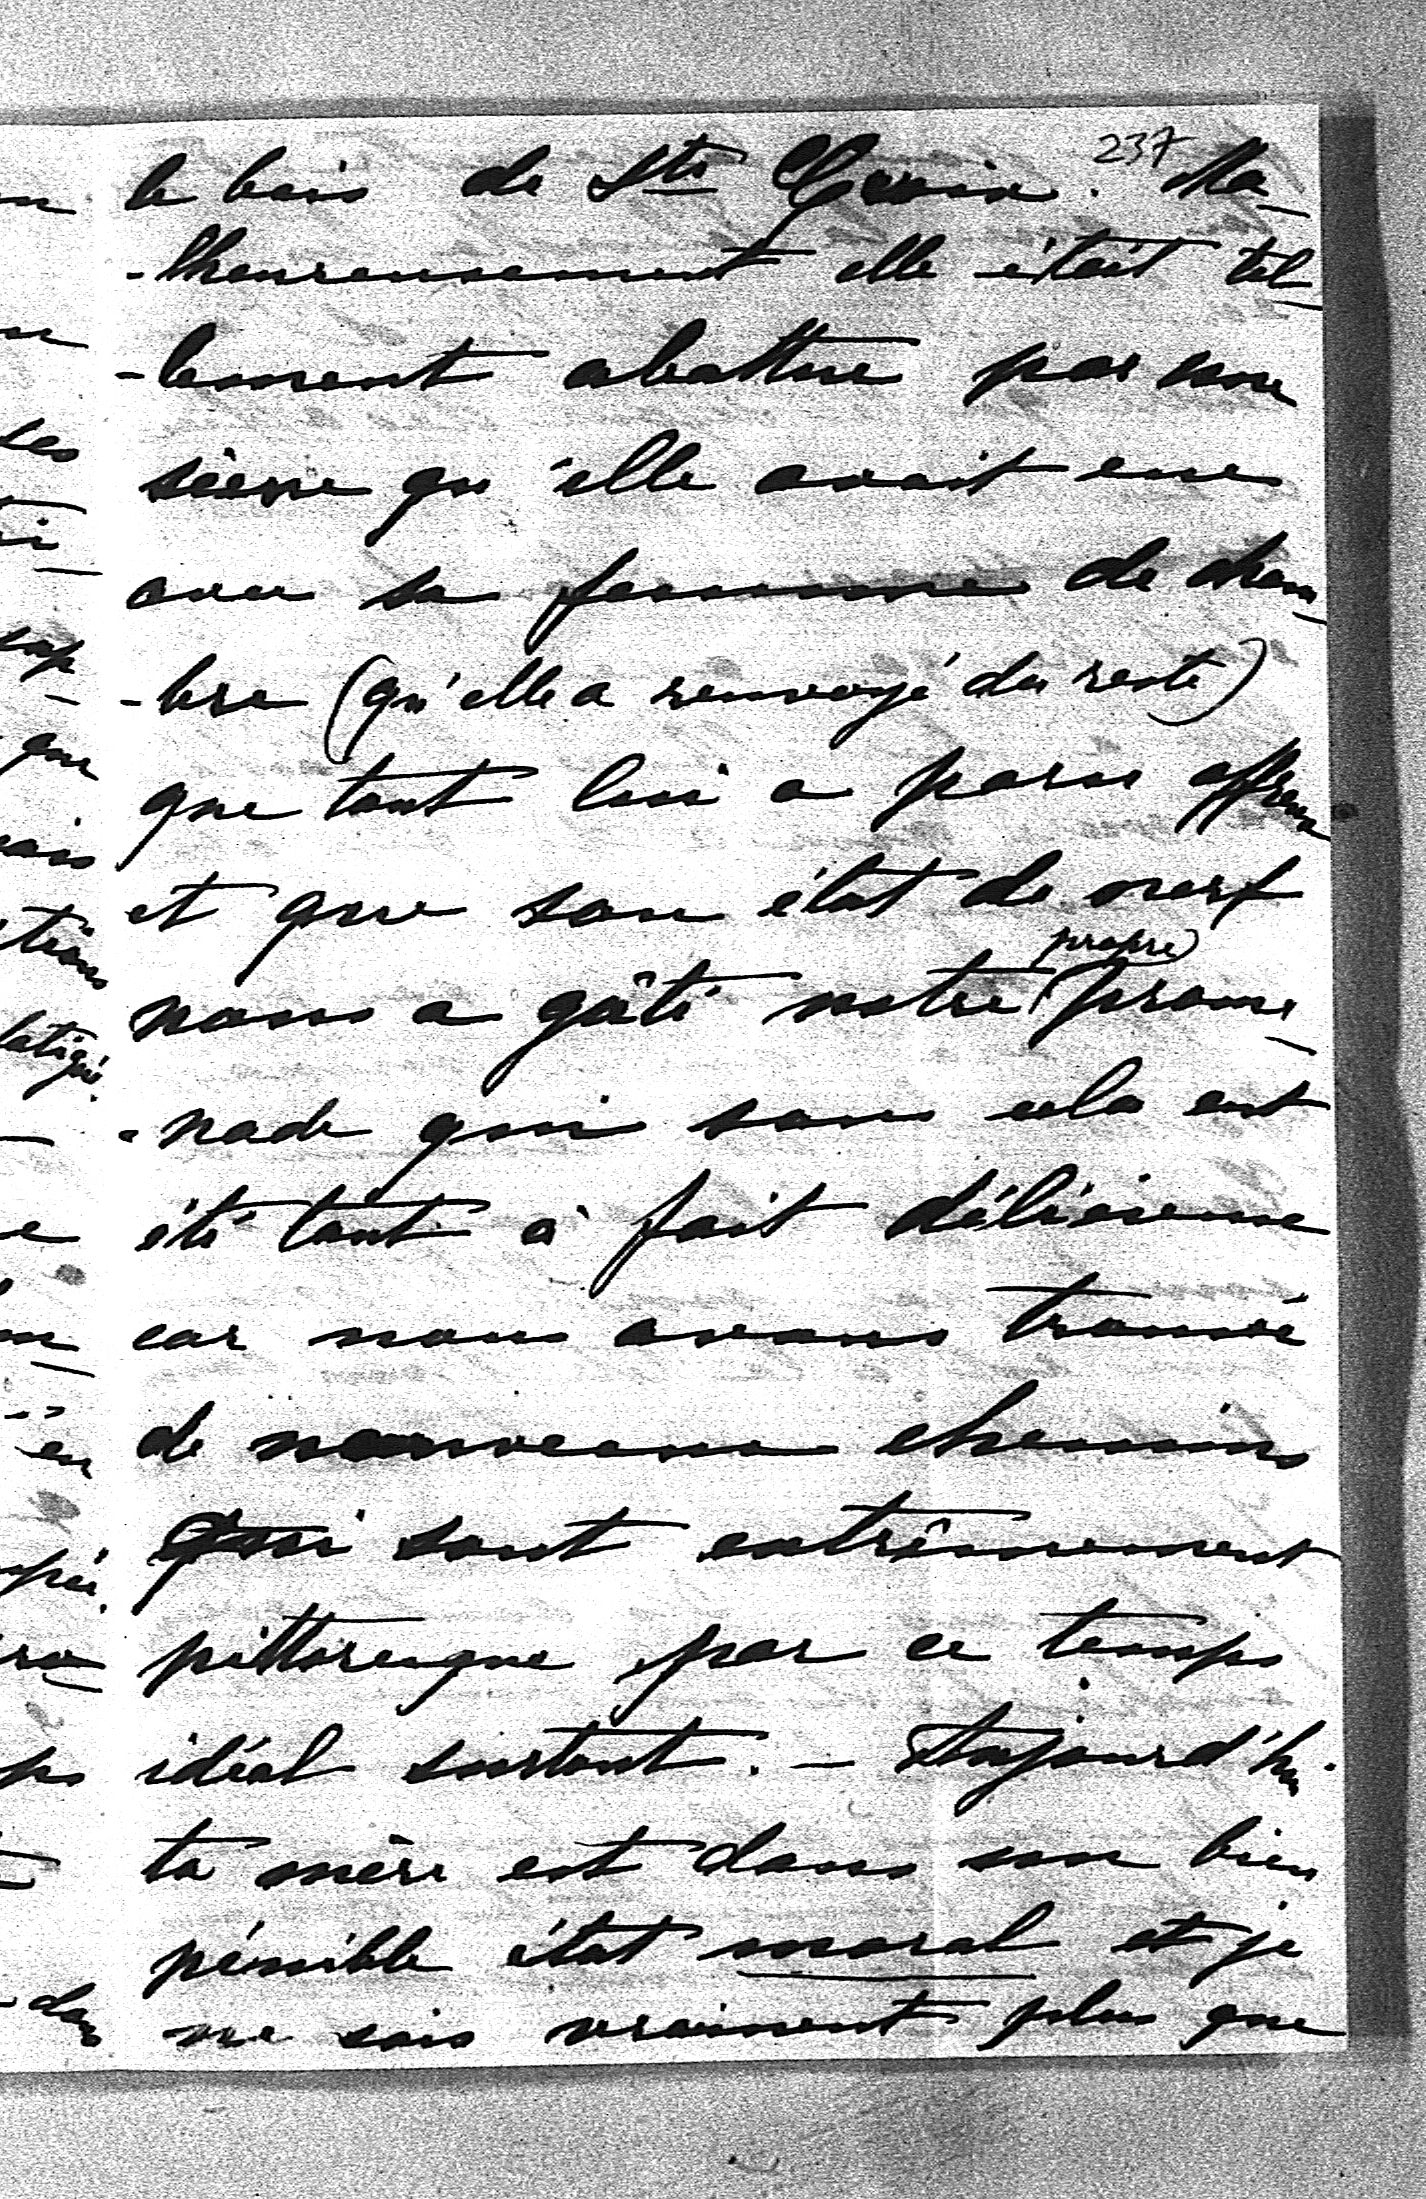 237
le bois de Ste Croix. Ma-
-lheureusement elle était tel-
-lement abattue par une
scène qu'elle avait eue
avec sa femme de cham-
-bre (qu'elle a renvoyé du reste)
que tout lui a paru affreux
et que son état de nerf
propre
nous a gâté notre prome-
-nade qui sans cela eut
été tout à fait délicieuse
car nous avons trouvé
de nouveaux chemins
qui sont extrêmement
pittoresque par ce temps
idéal surtout. — Aujourd'hui
ta mère est dans un bien
pénible état moral et je
ne sais vraiment plus que